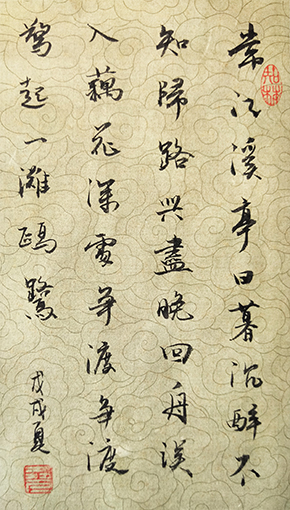 常记溪亭日暮沉醉不
知歸路兴盡晚回舟误
入藕花深處争渡争渡
驚起一滩鸥鹭
戊戌夏